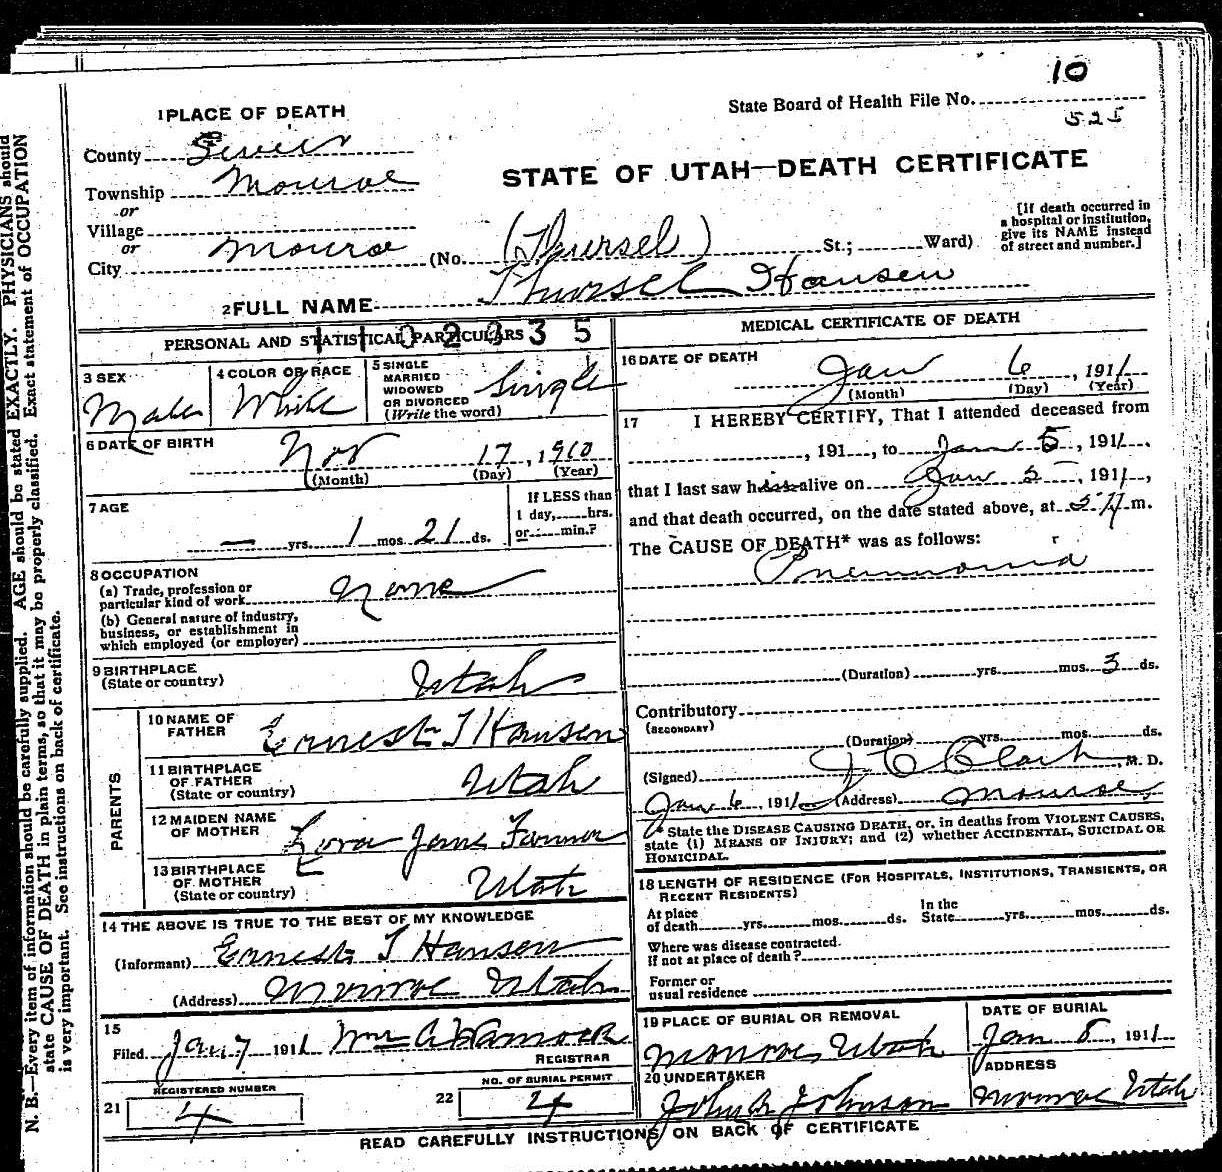 10
State Board of Health File No.
525
1 PLACE OF DEATH
County Sevier
STATE OF UTAH—DEATH CERTIFICATE
Township Monroe
or
Village
or
City Monroe (No. (Thursel) St.; Ward)
[If death occurred in
a hospital or institution,
give its NAME instead
of street and number.]
2 FULL NAME Thorsel Hansen
PERSONAL AND STATISTICAL PARTICULARS
1102335
3 SEX
Male
4 COLOR OR RACE
White
5 SINGLE
MARRIED
WIDOWED
OR DIVORCED
(Write the word)
Single
6 DATE OF BIRTH
Nov 17, 1910
(Month) (Day) (Year)
7 AGE
— yrs. 1 mos. 21 ds.
If LESS than
1 day, hrs.
or min.?
8 OCCUPATION
(a) Trade, profession or
particular kind of work None
(b) General nature of industry,
business, or establishment in
which employed (or employer)
9 BIRTHPLACE
(State or country) Utah
PARENTS
10 NAME OF
FATHER Ernest T Hansen
11 BIRTHPLACE
OF FATHER
(State or country) Utah
12 MAIDEN NAME
OF MOTHER Lora Jane Farmer
13 BIRTHPLACE
OF MOTHER
(State or country) Utah
14 THE ABOVE IS TRUE TO THE BEST OF MY KNOWLEDGE
(Informant) Ernest T Hansen
(Address) Monroe Utah
15
Filed Jan 7 1911 Wm A Warnock
REGISTRAR
REGISTERED NUMBER
21 4
NO. OF BURIAL PERMIT
22 4
MEDICAL CERTIFICATE OF DEATH
16 DATE OF DEATH
Jan 6, 1911
(Month) (Day) (Year)
17 I HEREBY CERTIFY, That I attended deceased from
, 191 , to Jan 5, 1911,
that I last saw him alive on Jan 5, 1911,
and that death occurred, on the date stated above, at 5 m.
The CAUSE OF DEATH* was as follows:
Pneumonia
(Duration) yrs. mos. 3 ds.
Contributory
(SECONDARY)
(Duration) yrs. mos. ds.
(Signed) Clark, M. D.
Jan 6, 1911 (Address) Monroe
* State the DISEASE CAUSING DEATH, or, in deaths from VIOLENT CAUSES,
state (1) MEANS OF INJURY; and (2) whether ACCIDENTAL, SUICIDAL OR
HOMICIDAL.
18 LENGTH OF RESIDENCE (FOR HOSPITALS, INSTITUTIONS, TRANSIENTS, OR
RECENT RESIDENTS)
At place
of death yrs. mos. ds.
In the
State yrs. mos. ds.
Where was disease contracted.
if not at place of death?
Former or
usual residence
19 PLACE OF BURIAL OR REMOVAL
Monroe, Utah
DATE OF BURIAL
Jan 8, 1911
20 UNDERTAKER
John Johnson
ADDRESS
Monroe Utah
READ CAREFULLY INSTRUCTIONS ON BACK OF CERTIFICATE
N. B.—Every item of information should be carefully supplied. AGE should be stated EXACTLY. PHYSICIANS should
state CAUSE OF DEATH in plain terms, so that it may be properly classified. Exact statement of OCCUPATION
is very important. See instructions on back of certificate.